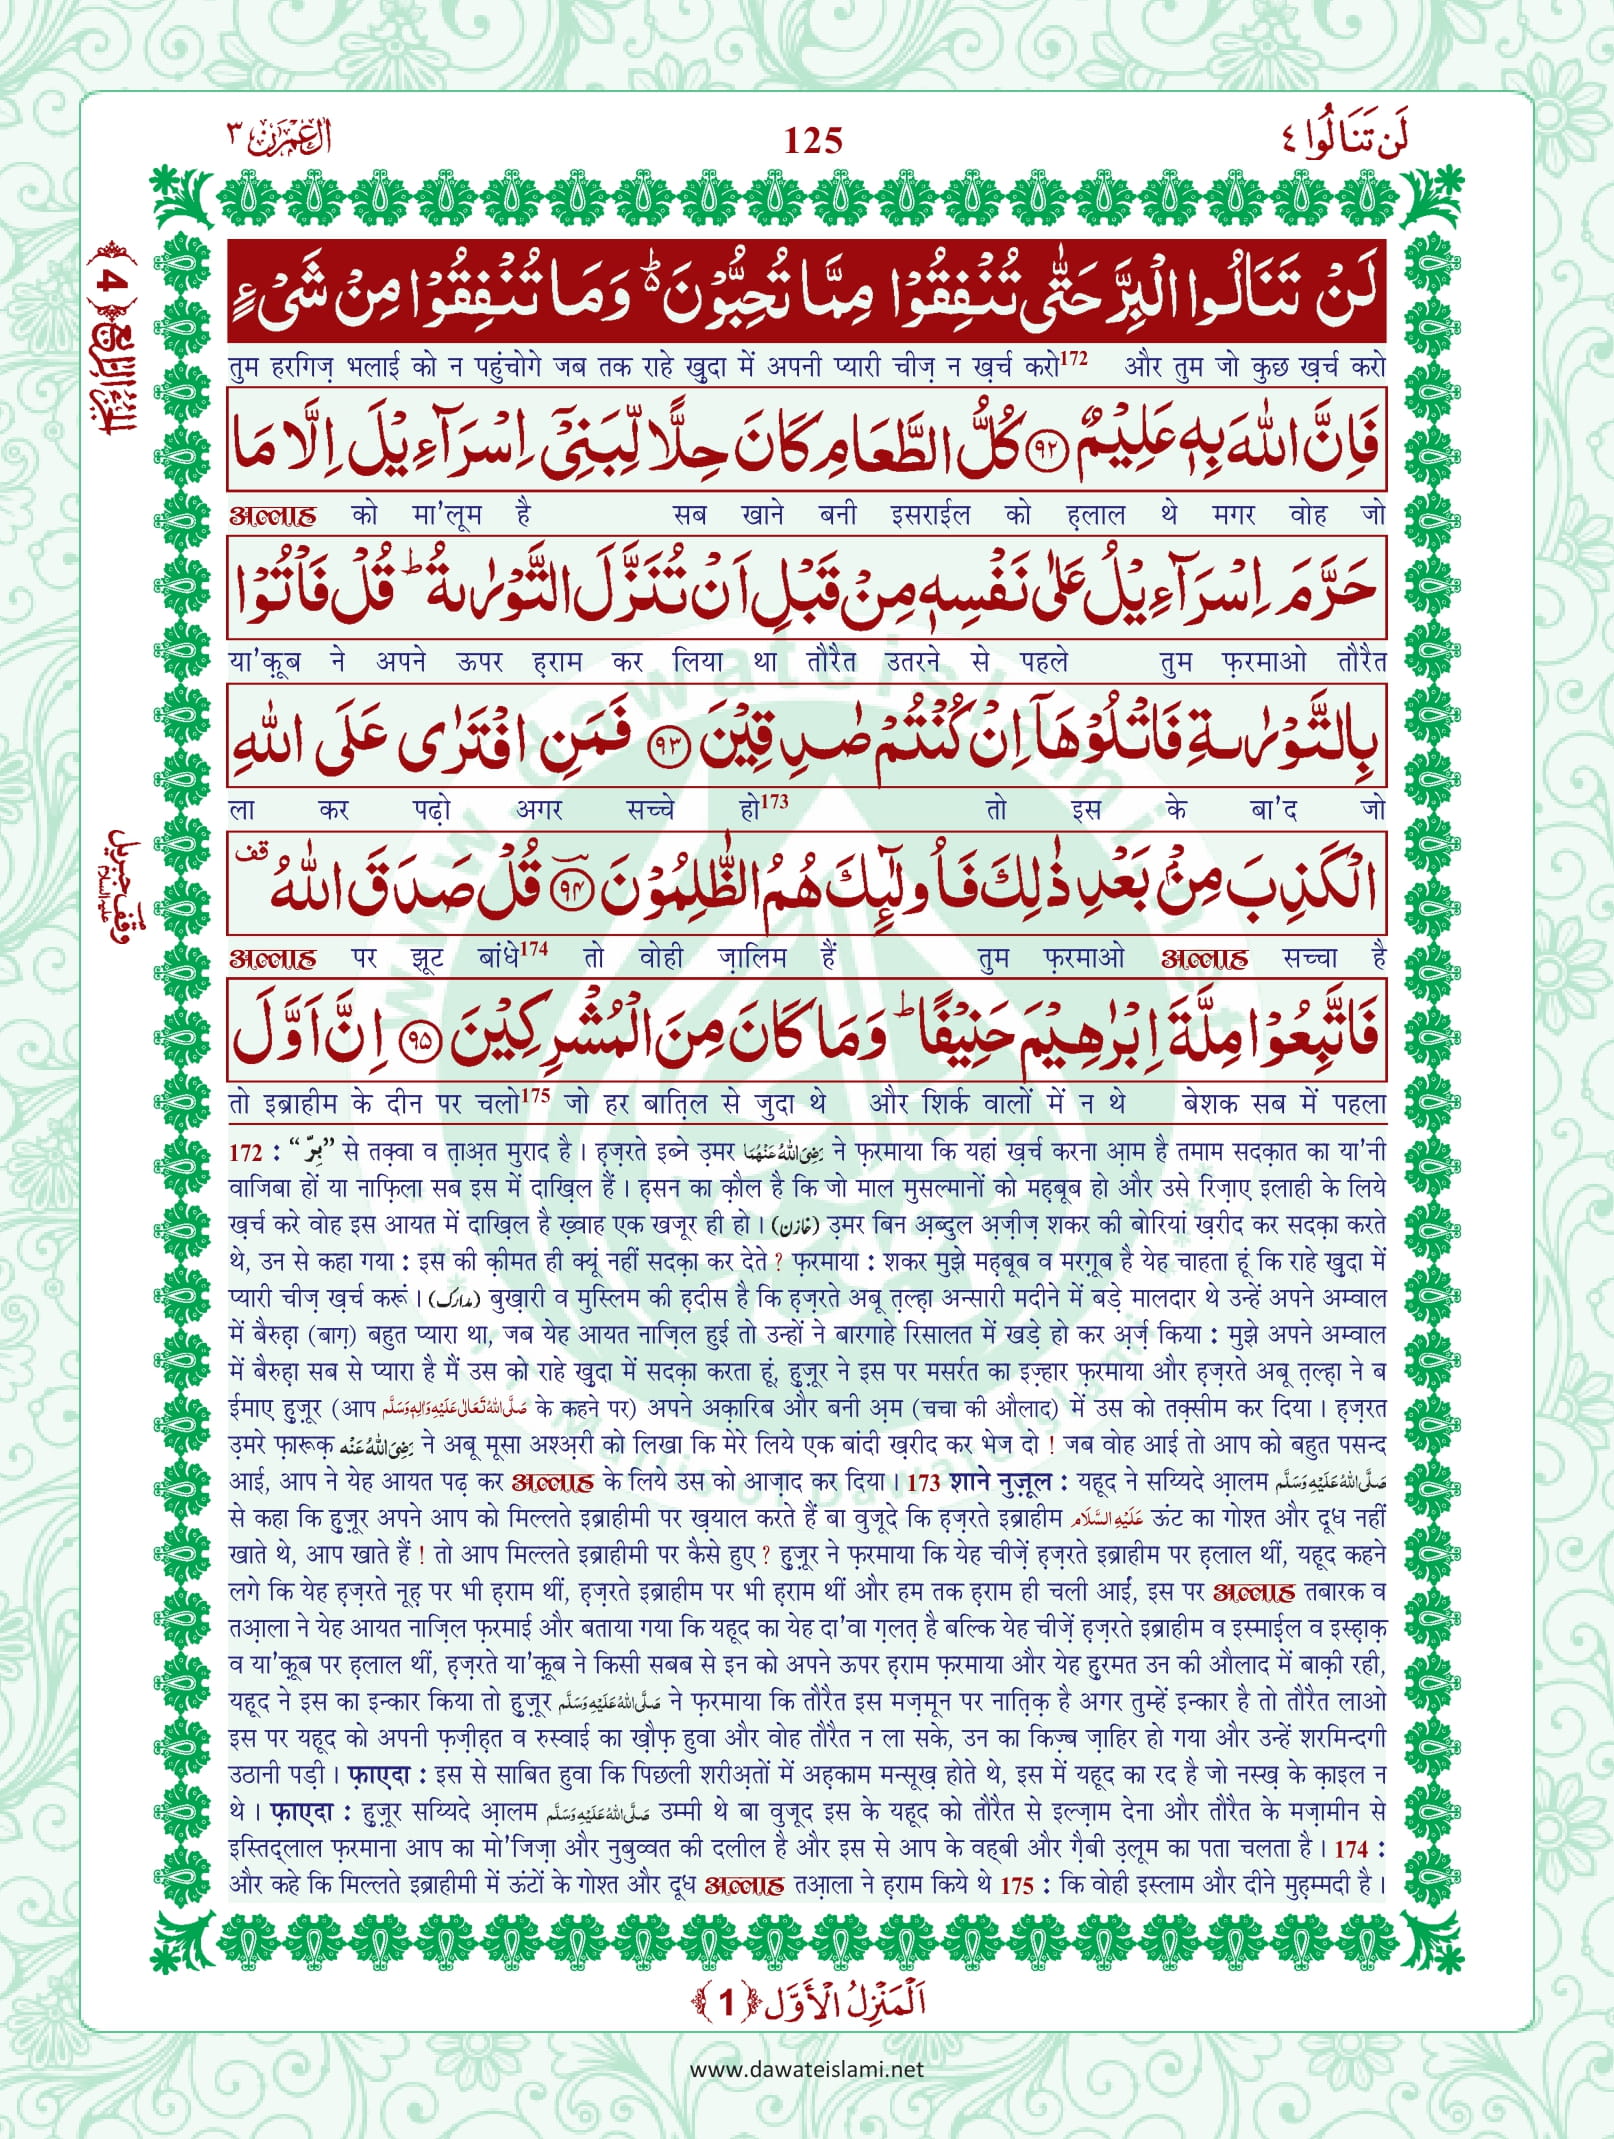 اٰل عمرٰن ٣
125
لَن تَنَالُوا ٤
لَنْ تَنَالُوا الْبِرَّ حَتّٰى تُنْفِقُوْا مِمَّا تُحِبُّوْنَ ؕ۬ وَمَا تُنْفِقُوْا مِنْ شَیْءٍ
तुम हरगिज़ भलाई को न पहुंचोगे जब तक राहे ख़ुदा में अपनी प्यारी चीज़ न ख़र्च करो172 और तुम जो कुछ ख़र्च करो
فَاِنَّ اللّٰهَ بِهٖ عَلِیْمٌ ﴿۹۲﴾ كُلُّ الطَّعَامِ كَانَ حِلًّا لِّبَنِیْۤ اِسْرَآءِیْلَ اِلَّا مَا
अल्लाह को मा'लूम है सब खाने बनी इसराईल को ह़लाल थे मगर वोह जो
حَرَّمَ اِسْرَآءِیْلُ عَلٰى نَفْسِهٖ مِنْ قَبْلِ اَنْ تُنَزَّلَ التَّوْرٰىةُ ؕ قُلْ فَاْتُوْا
या'क़ूब ने अपने ऊपर ह़राम कर लिया था तौरैत उतरने से पहले तुम फ़रमाओ तौरैत
بِالتَّوْرٰىةِ فَاتْلُوْهَاۤ اِنْ كُنْتُمْ صٰدِقِیْنَ ﴿۹۳﴾ فَمَنِ افْتَرٰى عَلَى اللّٰهِ
ला कर पढ़ो अगर सच्चे हो173 तो इस के बा'द जो
الْكَذِبَ مِنْۢ بَعْدِ ذٰلِكَ فَاُولٰٓىِٕكَ هُمُ الظّٰلِمُوْنَ ﴿۹۴﴾ قُلْ صَدَقَ اللّٰهُ قف
अल्लाह पर झूट बांधे174 तो वोही ज़ालिम हैं तुम फ़रमाओ अल्लाह सच्चा है
فَاتَّبِعُوْا مِلَّةَ اِبْرٰهِیْمَ حَنِیْفًا ؕ وَمَا كَانَ مِنَ الْمُشْرِكِیْنَ ﴿۹۵﴾ اِنَّ اَوَّلَ
तो इब्राहीम के दीन पर चलो175 जो हर बात़िल से जुदा थे और शिर्क वालों में न थे बेशक सब में पहला
172 : “بِرّ” से तक़्वा व त़ाअ़त मुराद है । ह़ज़रते इब्ने उ़मर رَضِیَ اللهُ عَنْهُمَا ने फ़रमाया कि यहां ख़र्च करना आ़म है तमाम सदक़ात का या'नी
वाजिबा हों या नाफ़िला सब इस में दाख़िल हैं । ह़सन का क़ौल है कि जो माल मुसल्मानों को मह़बूब हो और उसे रिज़ाए इलाही के लिये
ख़र्च करे वोह इस आयत में दाख़िल है ख़्वाह एक खजूर ही हो । (خازن) उ़मर बिन अ़ब्दुल अ़ज़ीज़ शकर की बोरियां ख़रीद कर सदक़ा करते
थे, उन से कहा गया : इस की क़ीमत ही क्यूं नहीं सदक़ा कर देते ? फ़रमाया : शकर मुझे मह़बूब व मरग़ूब है येह चाहता हूं कि राहे ख़ुदा में
प्यारी चीज़ ख़र्च करूं । (مدارک) बुख़ारी व मुस्लिम की ह़दीस है कि ह़ज़रते अबू त़ल्ह़ा अन्सारी मदीने में बड़े मालदार थे उन्हें अपने अम्वाल
में बैरुह़ा (बाग़) बहुत प्यारा था, जब येह आयत नाज़िल हुई तो उन्हों ने बारगाहे रिसालत में खड़े हो कर अ़र्ज़ किया : मुझे अपने अम्वाल
में बैरुह़ा सब से प्यारा है मैं उस को राहे ख़ुदा में सदक़ा करता हूं, हुज़ूर ने इस पर मसर्रत का इज़्हार फ़रमाया और ह़ज़रते अबू त़ल्ह़ा ने ब
ईमाए हुज़ूर (आप صَلَّی اللهُ تَعَالٰی عَلَیْهِ وَاٰلِهٖ وَسَلَّم के कहने पर) अपने अक़ारिब और बनी अ़म (चचा की औलाद) में उस को तक़्सीम कर दिया । ह़ज़रत
उ़मरे फ़ारूक़ رَضِیَ اللهُ عَنْه ने अबू मूसा अश्अ़री को लिखा कि मेरे लिये एक बांदी ख़रीद कर भेज दो ! जब वोह आई तो आप को बहुत पसन्द
आई, आप ने येह आयत पढ़ कर अल्लाह के लिये उस को आज़ाद कर दिया । 173 शाने नुज़ूल : यहूद ने सय्यिदे आ़लम صَلَّی اللهُ عَلَیْهِ وَسَلَّم
से कहा कि हुज़ूर अपने आप को मिल्लते इब्राहीमी पर ख़याल करते हैं बा वुजूदे कि ह़ज़रते इब्राहीम عَلَیْهِ السَّلَام ऊंट का गोश्त और दूध नहीं
खाते थे, आप खाते हैं ! तो आप मिल्लते इब्राहीमी पर कैसे हुए ? हुज़ूर ने फ़रमाया कि येह चीज़ें ह़ज़रते इब्राहीम पर ह़लाल थीं, यहूद कहने
लगे कि येह ह़ज़रते नूह़ पर भी ह़राम थीं, ह़ज़रते इब्राहीम पर भी ह़राम थीं और हम तक ह़राम ही चली आईं, इस पर अल्लाह तबारक व
तआ़ला ने येह आयत नाज़िल फ़रमाई और बताया गया कि यहूद का येह दा'वा ग़लत़ है बल्कि येह चीज़ें ह़ज़रते इब्राहीम व इस्माईल व इस्ह़ाक़
व या'क़ूब पर ह़लाल थीं, ह़ज़रते या'क़ूब ने किसी सबब से इन को अपने ऊपर ह़राम फ़रमाया और येह हुरमत उन की औलाद में बाक़ी रही,
यहूद ने इस का इन्कार किया तो हुज़ूर صَلَّی اللهُ عَلَیْهِ وَسَلَّم ने फ़रमाया कि तौरैत इस मज़मून पर नात़िक़ है अगर तुम्हें इन्कार है तो तौरैत लाओ
इस पर यहूद को अपनी फ़ज़ीह़त व रुस्वाई का ख़ौफ़ हुवा और वोह तौरैत न ला सके, उन का किज़्ब ज़ाहिर हो गया और उन्हें शरमिन्दगी
उठानी पड़ी । फ़ाएदा : इस से साबित हुवा कि पिछली शरीअ़तों में अह़काम मन्सूख़ होते थे, इस में यहूद का रद है जो नस्ख़ के क़ाइल न
थे । फ़ाएदा : हुज़ूर सय्यिदे आ़लम صَلَّی اللهُ عَلَیْهِ وَسَلَّم उम्मी थे बा वुजूद इस के यहूद को तौरैत से इल्ज़ाम देना और तौरैत के मज़ामीन से
इस्तिद्लाल फ़रमाना आप का मो'जिज़ा और नुबुव्वत की दलील है और इस से आप के वह्बी और ग़ैबी उ़लूम का पता चलता है । 174 :
और कहे कि मिल्लते इब्राहीमी में ऊंटों के गोश्त और दूध अल्लाह तआ़ला ने ह़राम किये थे 175 : कि वोही इस्लाम और दीने मुह़म्मदी है ।
الجزء الرابع ﴿4﴾
وقف جبریل علیہ السلام
اَلْمَنْزِلُ الْاَوَّل ﴿1﴾
www.dawateislami.net